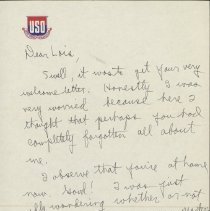 USO
Dear Lois,
Swell, it was to get your very
welcome letter. Honestly I was
very worried because here I
thought that perhaps you had
completely forgotten all about
me.
I observe that you're at home
now. Good! I was just
wondering whether or not